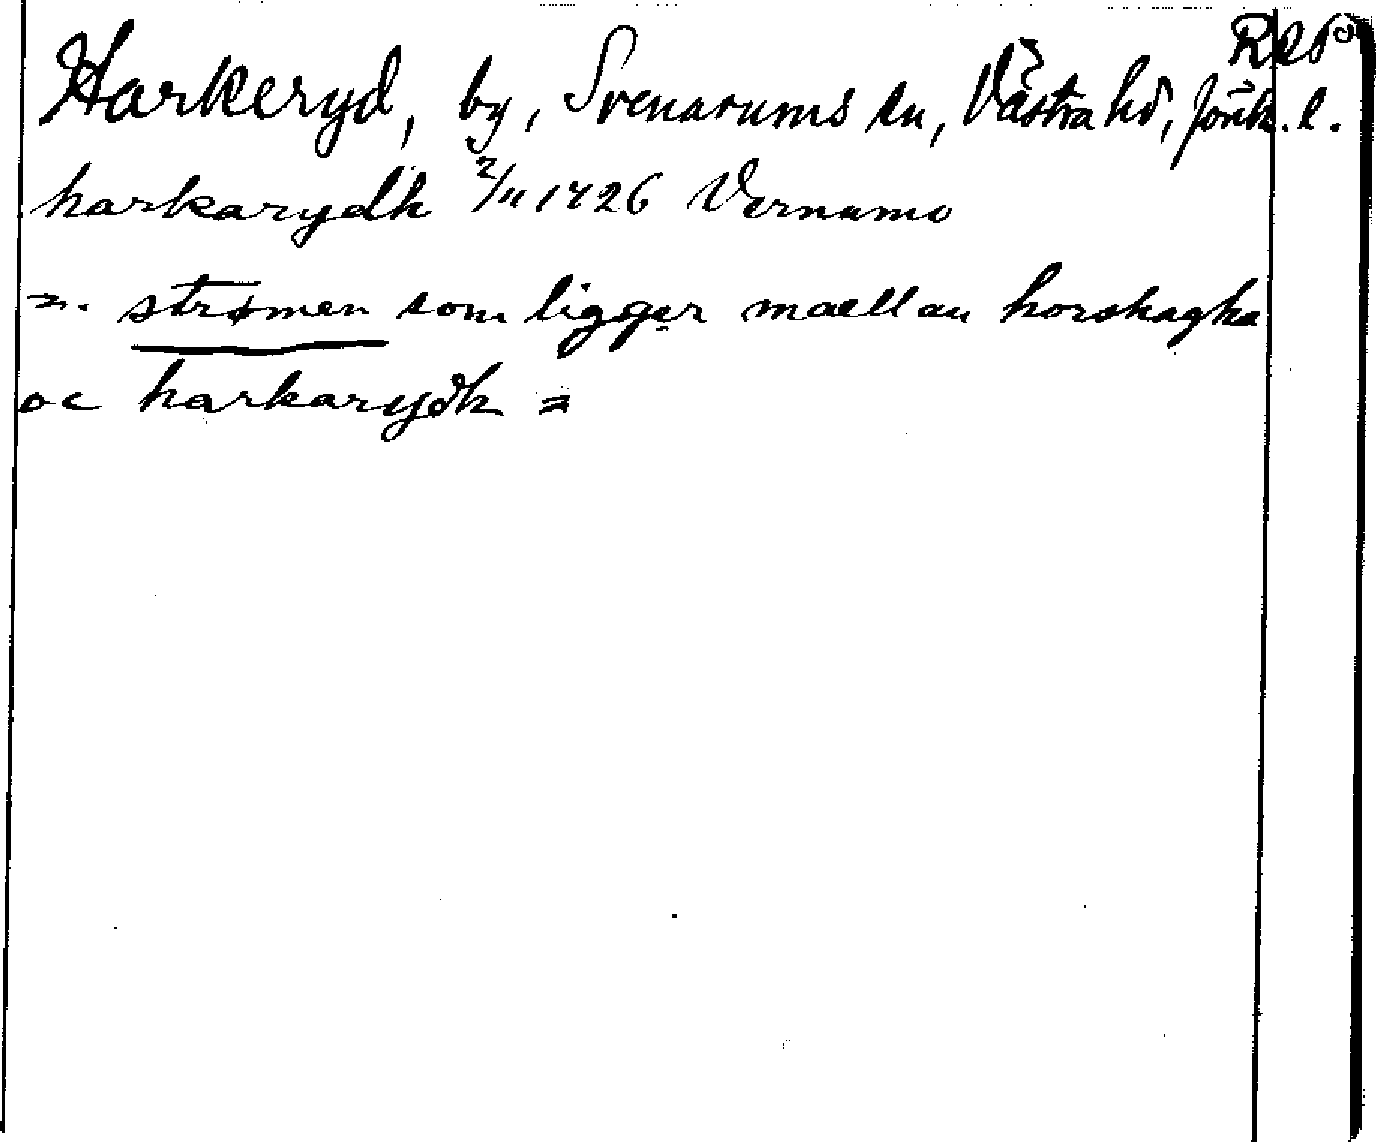 Rep
Harkeryd, by, Svenarums sn, Västra hd, Jönk. l.
harkarydh 2/11 1426 Vernamo
=. strømen som ligger maellan horshagha
oc harkarydh =